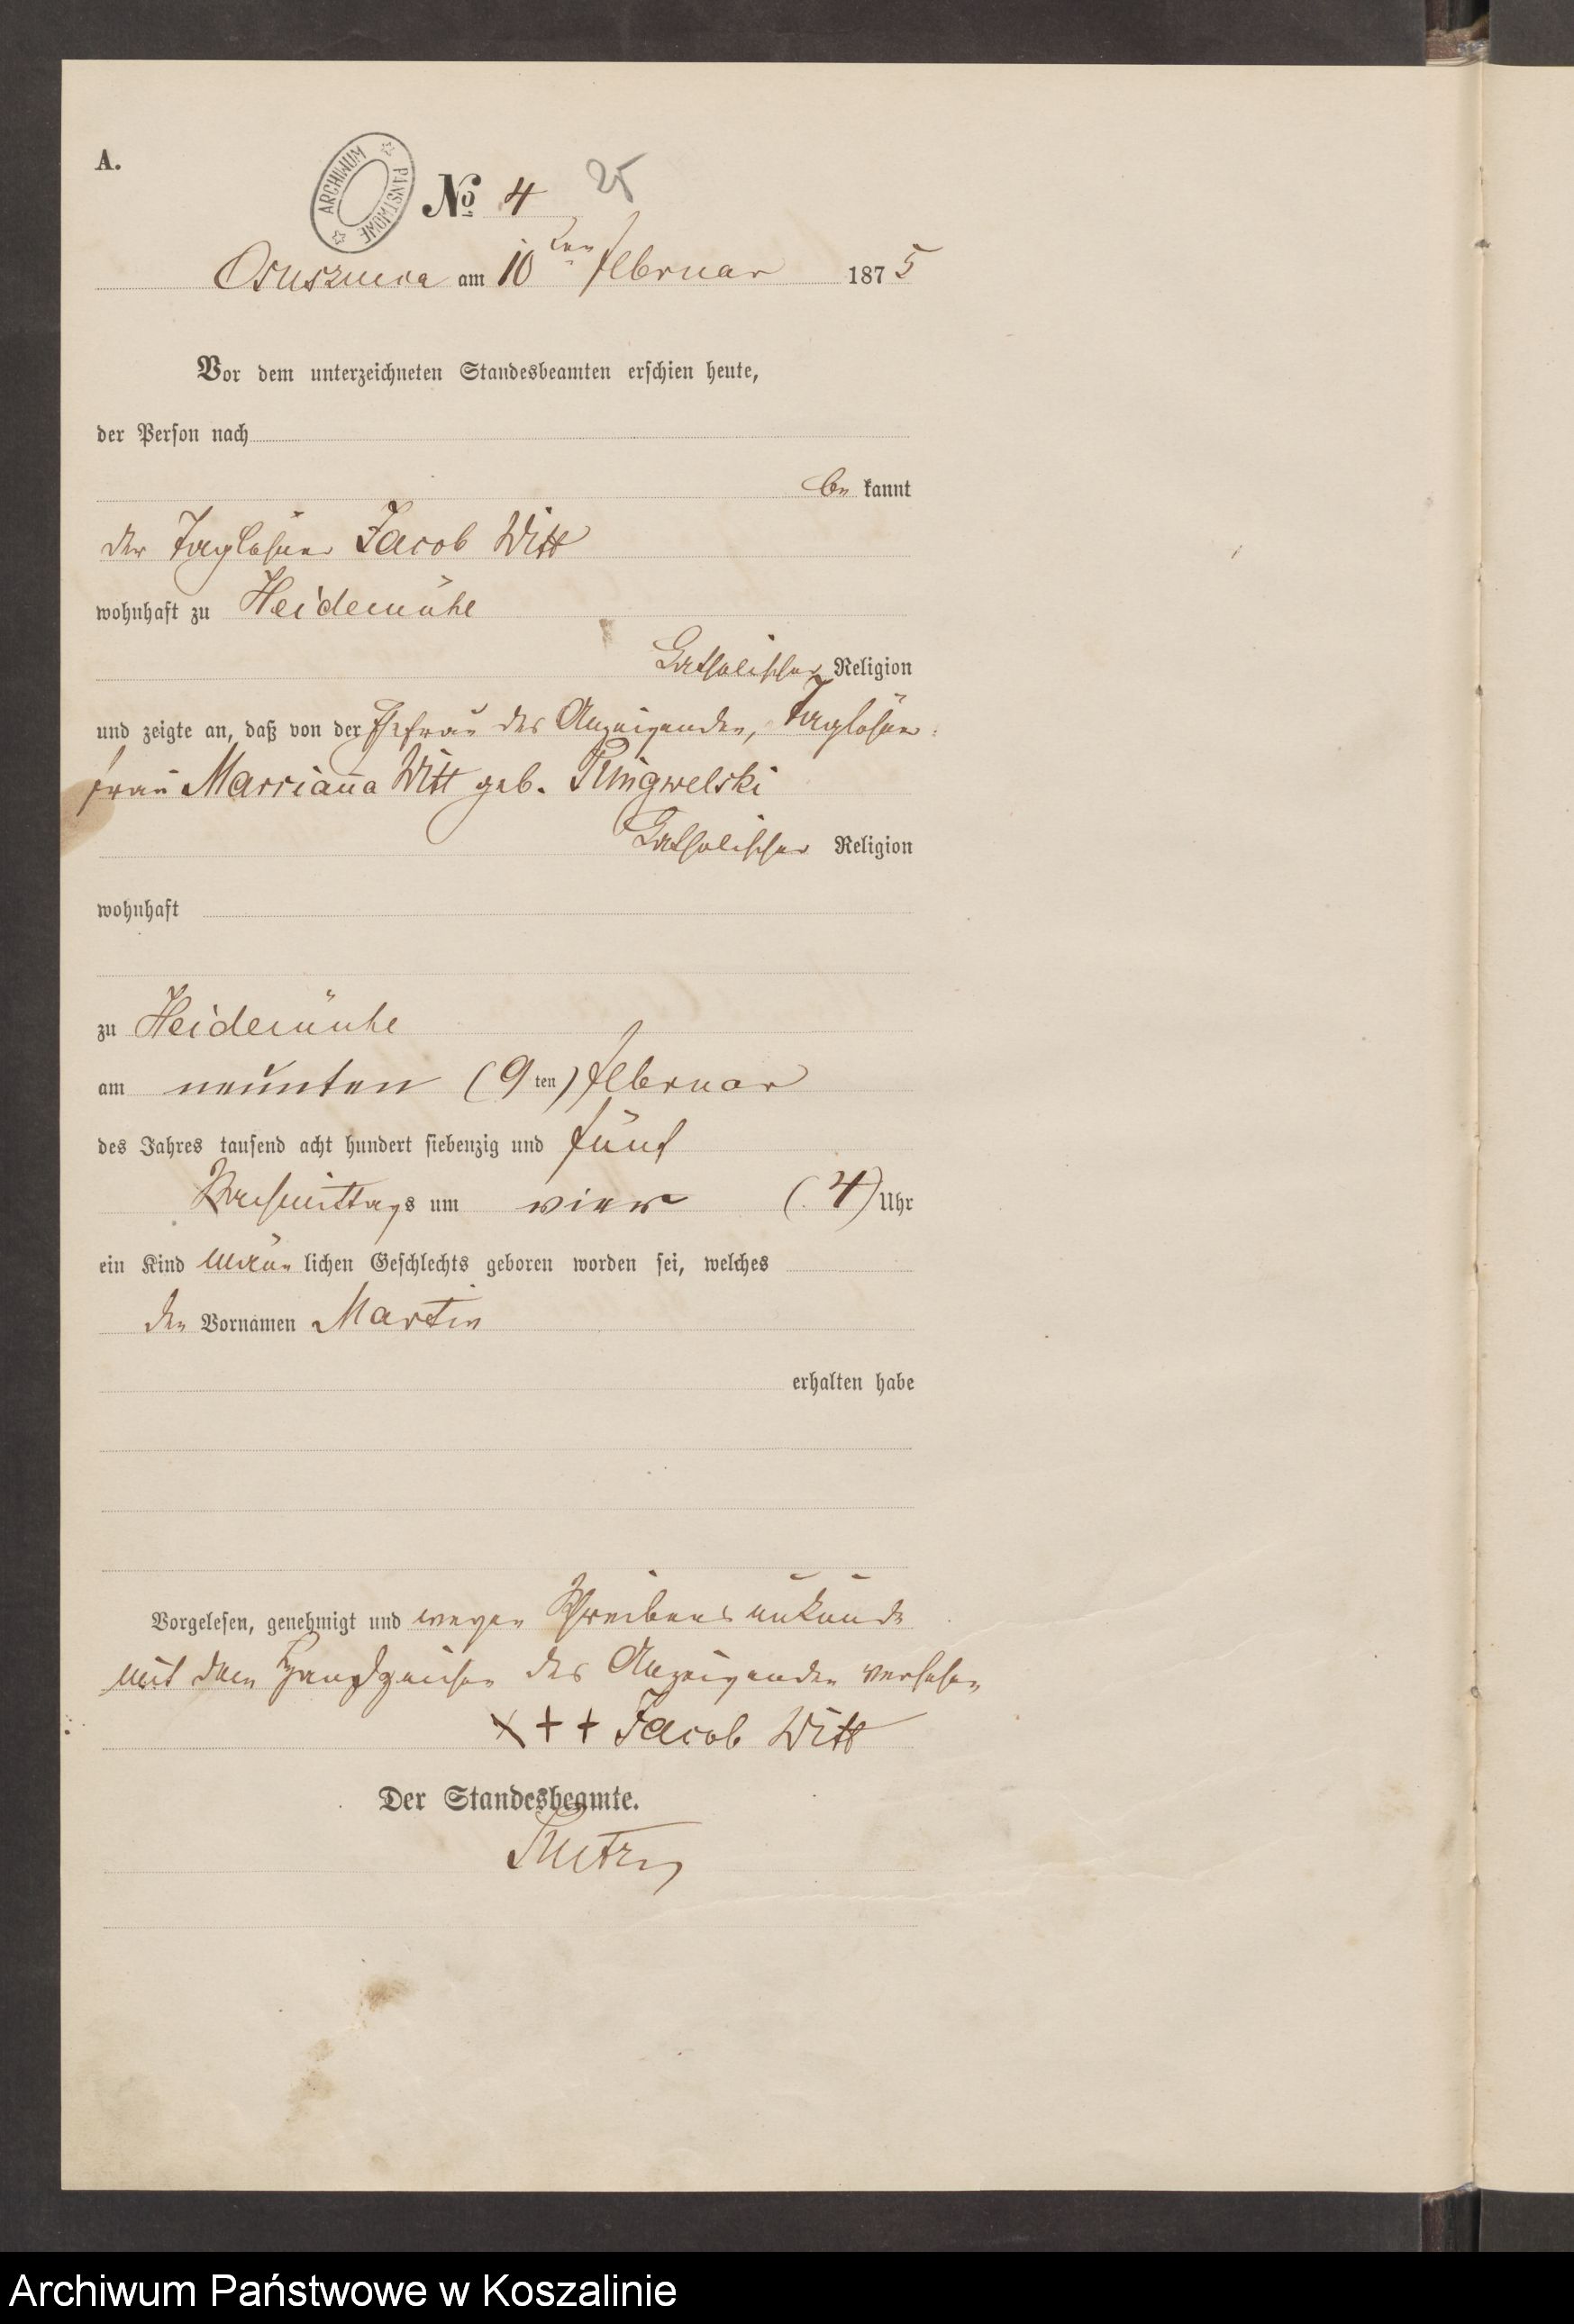 A.
ARCHIWUM PAŃSTWOWE
No 4 25
Osuszniza am 10ten Februar 1875
Vor dem unterzeichneten Standesbeamten erschien heute,
der Person nach
be kannt
der Taglöhner Jacob Witt
wohnhaft zu Heidemühe
Catholischer Religion
und zeigte an, daß von der Ehefrau des Anzeigenden, Taglöhner
frau Marrianna Witt geb.
Catholischer Religion
wohnhaft
zu Heidemühe
am neunten (9ten) Februar
des Jahres tausend acht hundert siebenzig und fünf
Nachmittags um vier (4) Uhr
ein Kind männlichen Geschlechts geboren worden sei, welches
den Vornamen Martin
erhalten habe
Vorgelesen, genehmigt und wegen Schreibens unkunde
mit dem Handzeichen des Anzeigenden versehen
+ + + Jacob Witt
Der Standesbeamte.
Archiwum Państwowe w Koszalinie